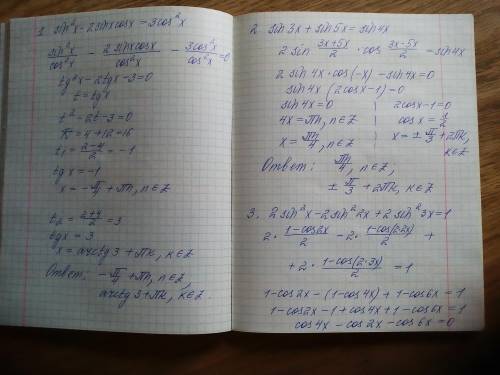 1. sin²x - 2sinxcosx = 3cos²x
sin²x/cos²x - 2sinxcosx/cos²x - 3cos²x/cos²x = 0
tg²x - 2tgx - 3 = 0
t = tgx
t² - 2t - 3 = 0
= 4 + 12 = 16
t₁ = (2-4)/2 = -1
tgx = -1
x = -π/4 + πn, n∈Z
t₂ = (2+4)/2 = 3
tgx = 3
x = arctg3 + πk, k∈Z
Ответ: -π/4 + πn, n∈Z,
arctg3 + πk, k∈Z.
2 sin3x + sin5x = sin4x
2 sin (3x+5x)/2 · cos (3x-5x)/2 = sin4x
2 sin4x · cos(-x) - sin4x = 0
sin4x (2cosx - 1) = 0
sin4x = 0 | 2cosx - 1 = 0
4x = πn, n∈Z | cosx = 1/2
x = πn/4, n∈Z | x = ± π/3 + 2πk, k∈Z
Ответ: πn/4, n∈Z,
± π/3 + 2πk, k∈Z
3. 2sin²x - 2sin²2x + 2sin²3x = 1
2 · (1-cos2x)/2 - 2 · (1-cos(2·2x))/2 +
+ 2 · (1-cos(2·3x))/2 = 1
1 - cos2x - (1 - cos4x) + 1 - cos6x = 1
1 - cos2x - 1 + cos4x + 1 - cos6x = 1
cos4x - cos2x - cos6x = 0